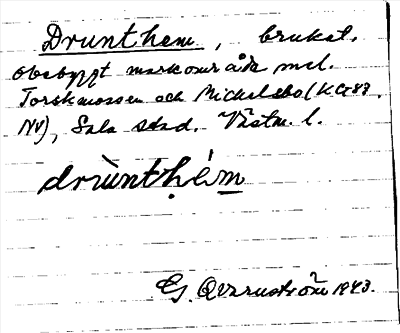 Drunthem, brukat.
obebyggt markområde mel.
Torskmossen och Mickelsbo (KG 87.
NV), Sala stad. Västm. l.
drùntḥém
G. Qvarnström 1943.